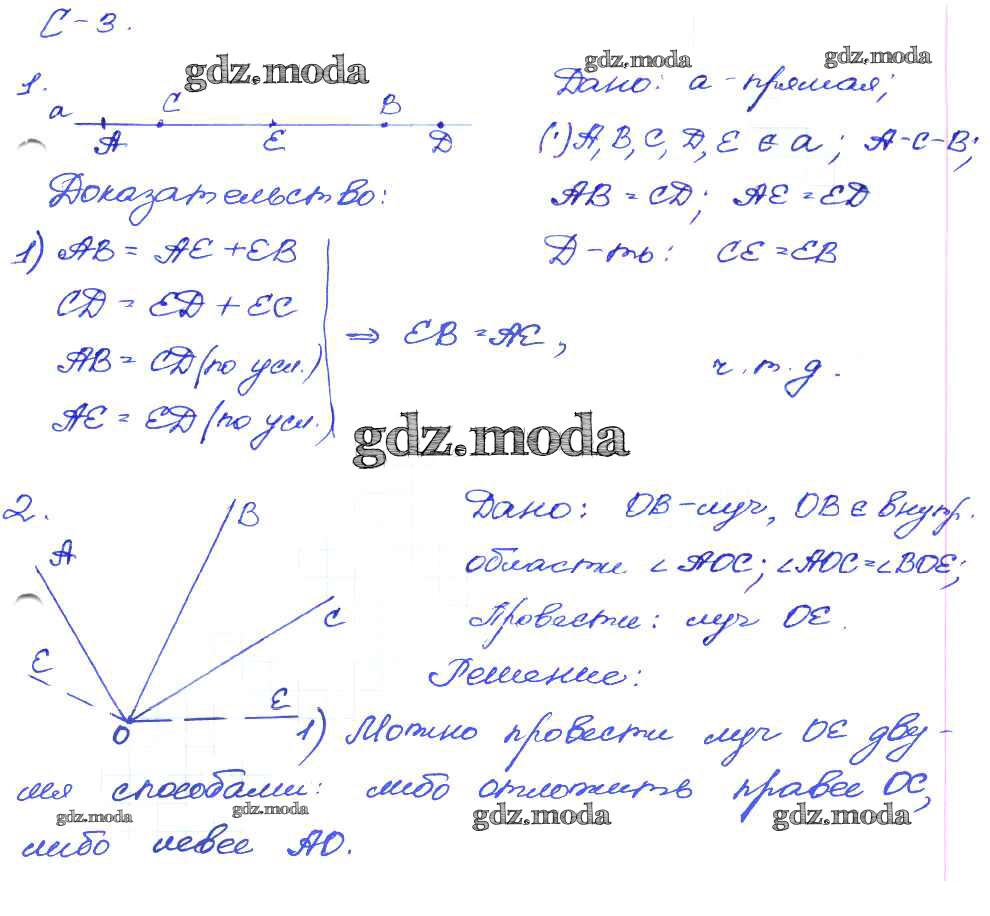 С-3.
1.
a A C E B D
Дано: a - прямая;
(·) A, B, C, D, E ∈ a; A-C-B;
AB = CD; AE = ED
Д-ть: CE = EB
Доказательство:
1) AB = AE + EB
CD = ED + EC
AB = CD (по усл.)
AE = ED (по усл.)
⇒ EB = AE,
ч.т.д.
2.
A B C E E O
Дано: OB - луч, OB ∈ внутр.
области ∠AOC; ∠AOC = ∠BOE;
Провести: луч OE.
Решение:
1) Можно провести луч OE дву-
мя способами: либо отложить правее OC,
либо левее AO.
gdz.moda
gdz.moda
gdz.moda
gdz.moda
gdz.moda
gdz.moda
gdz.moda
gdz.moda